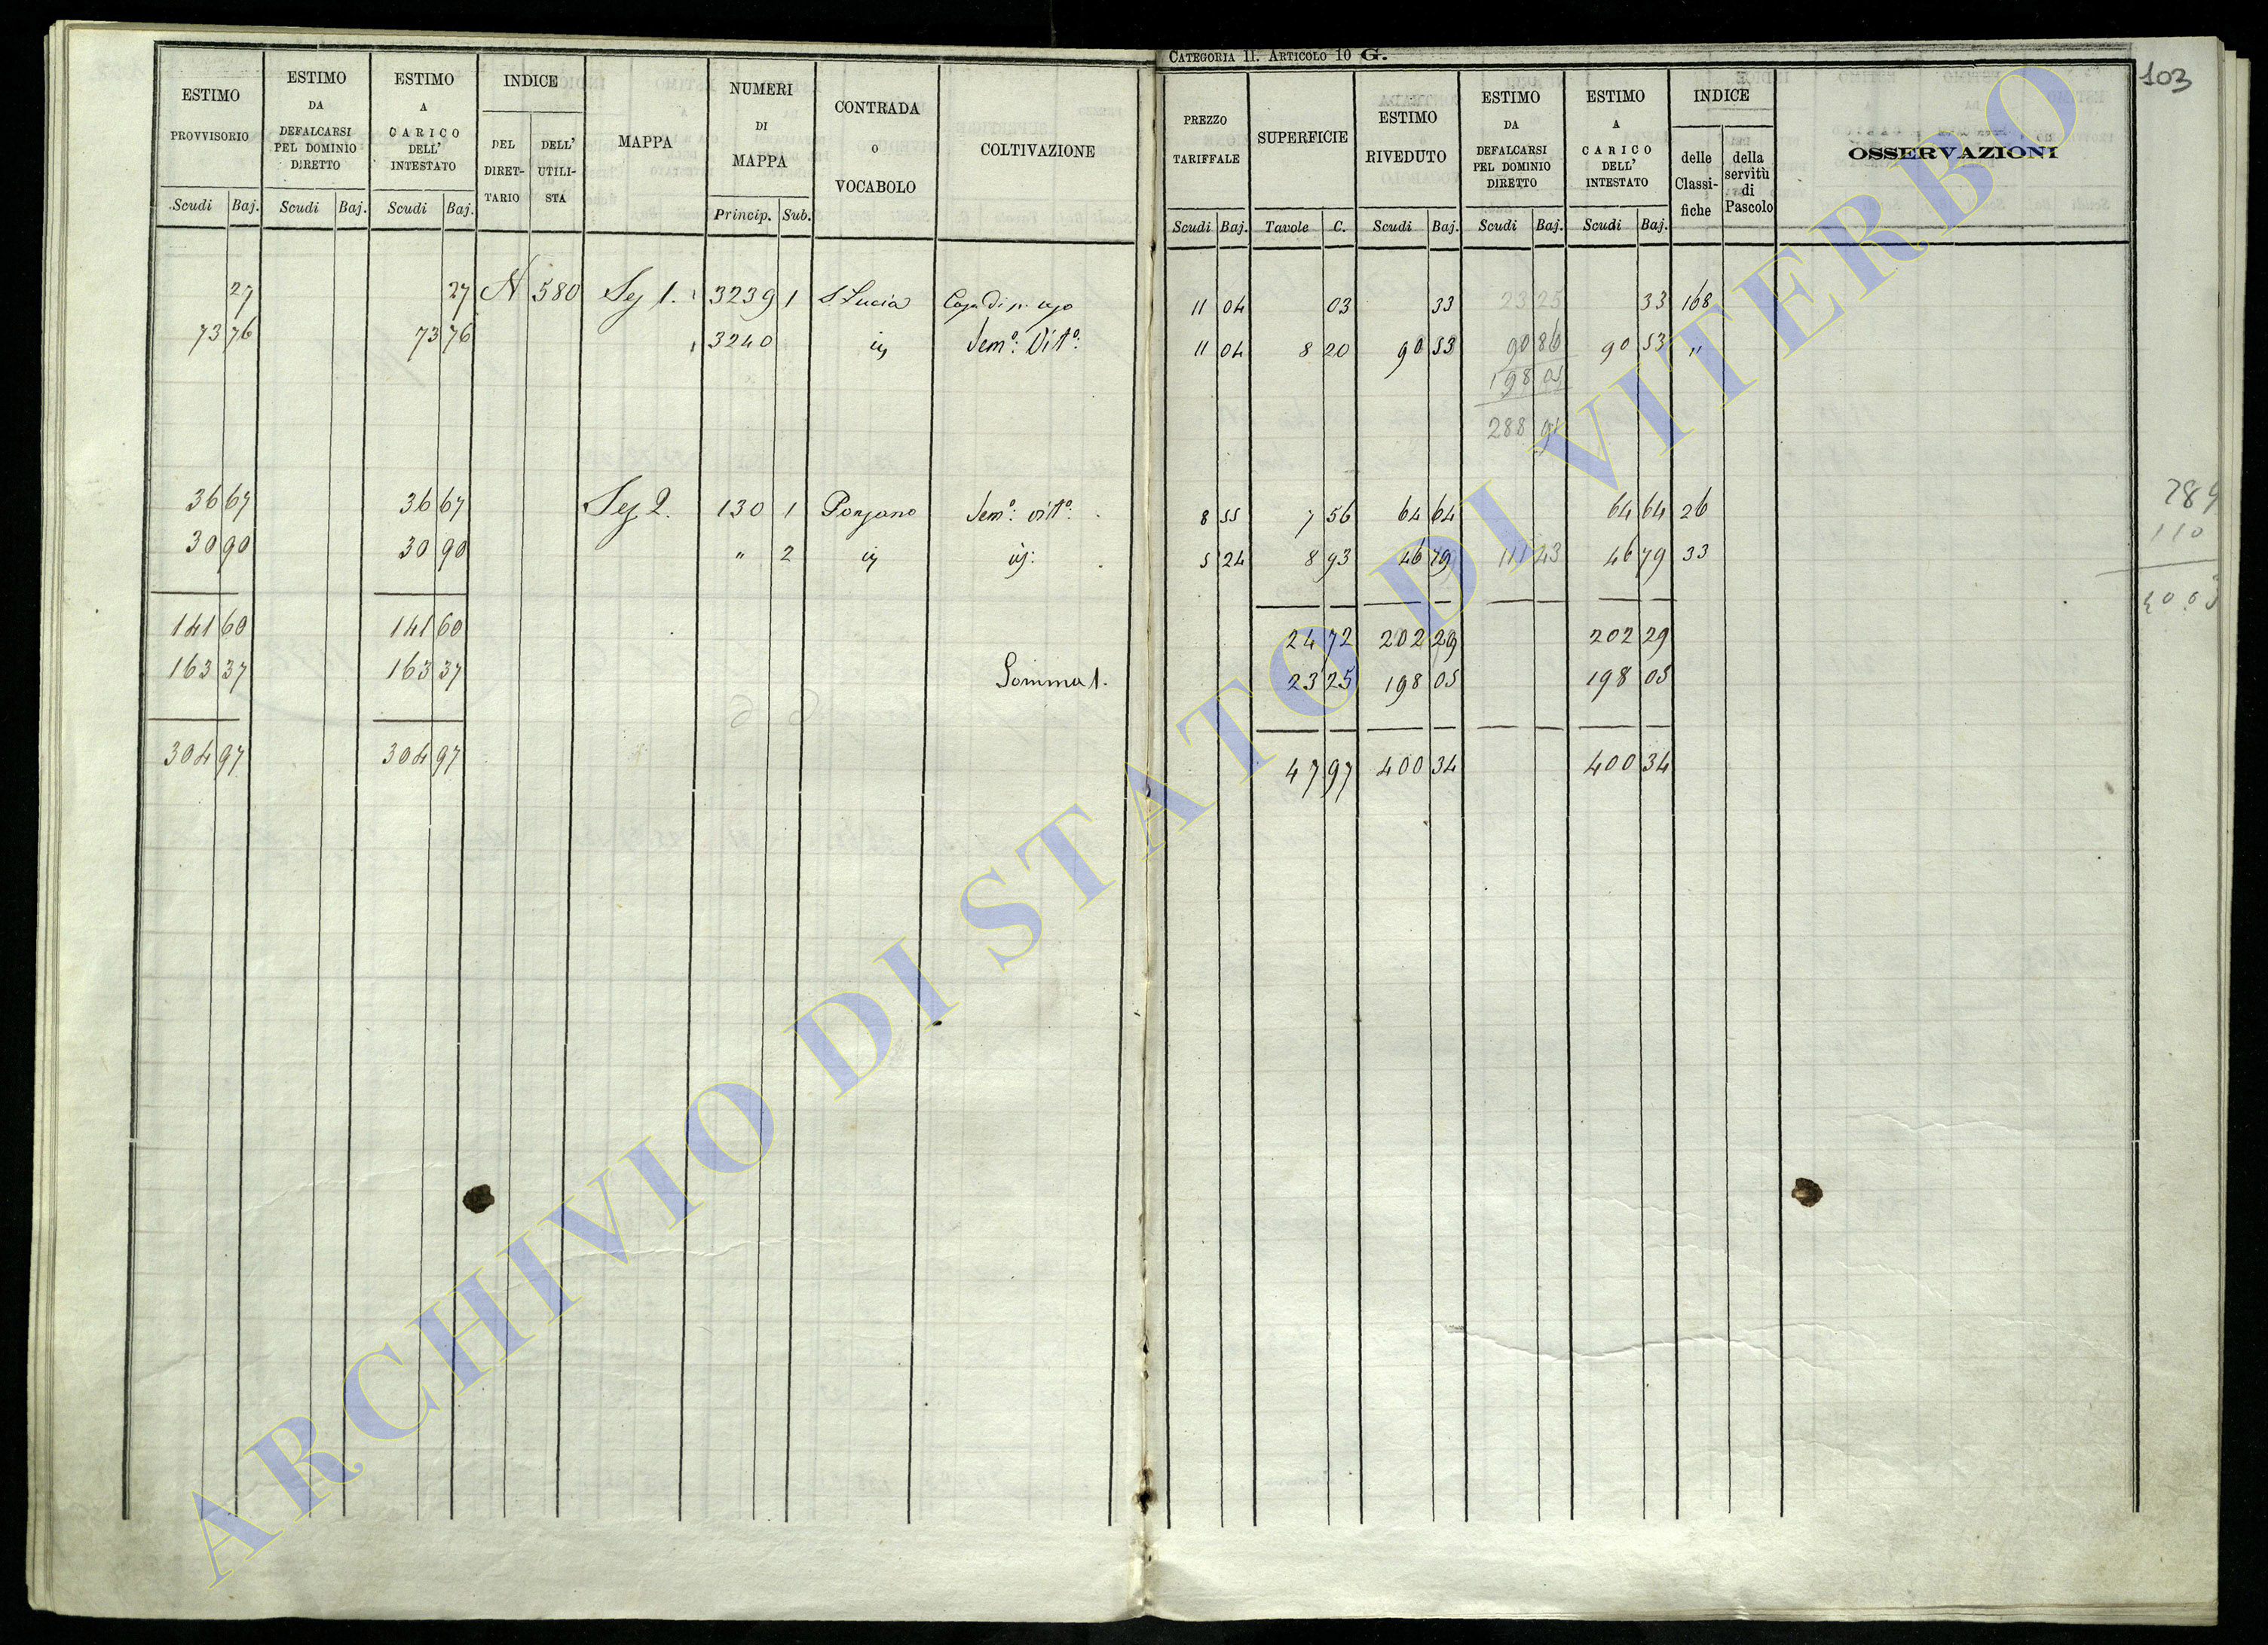 CATEGORIA II. ARTICOLO 10 G.
103
ESTIMO PROVVISORIO Scudi Baj.
ESTIMO DA DEFALCARSI PEL DOMINIO DIRETTO Scudi Baj.
ESTIMO A CARICO DELL' INTESTATO Scudi Baj.
INDICE DEL DIRET-TARIO DELL' UTILI-STA
MAPPA
NUMERI DI MAPPA Princip. Sub.
CONTRADA o VOCABOLO
COLTIVAZIONE
PREZZO TARIFFALE Scudi Baj.
SUPERFICIE Tavole C.
ESTIMO RIVEDUTO Scudi Baj.
ESTIMO DA DEFALCARSI PEL DOMINIO DIRETTO Scudi Baj.
ESTIMO A CARICO DELL' INTESTATO Scudi Baj.
INDICE delle Classi-fiche della servitù di Pascolo
OSSERVAZIONI
27 27 N 580 Sez 1. 3239 1 S Lucia 11 04 03 33 23 25 33 168
73 76 73 76 3240 Sem°: Vit°: 11 04 8 20 90 53 90 86 90 53 "
198 05
288 91
36 67 36 67 Sez 2. 130 1 Ponzano Sem°: vitt°: 8 55 7 56 64 64 64 64 26
30 90 30 90 " 2 5 24 8 93 46 79 111 43 46 79 33
141 60 141 60 24 72 202 29 202 29
163 37 163 37 Somma 1. 23 25 198 05 198 05
304 97 304 97 47 97 400 34 400 34
110
ARCHIVIO DI STATO DI VITERBO